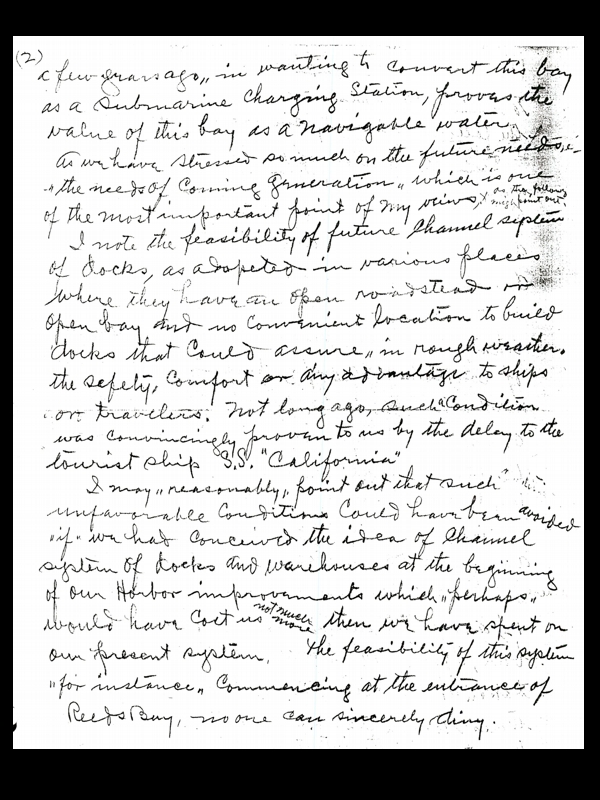 (2)
a few years ago,, in wanting to convert this bay
as a submarine charging Station, proves the
value of this bay as a navigable water.
As we have stressed so much on the future needs, i-
"the needs of coming generation" which is one
of the most important point of my views, & as the following might point out.
I note the feasibility of future channel system
of docks, as adopeted in various places
where they have an open roadstead or
open bay and no convenient location to build
docks that could assure,, in rough weather.
the safety, comfort or any advantage to ships
or travelers. Not long ago, such a condition
was convincingly proven to us by the delay to the
tourist ship S.S. "California"
I may,, reasonably,, point out that such
unfavorable conditions could have been avoided
"if" we had conceived the idea of channel
system of docks and warehouses at the beginning
of our Harbor improvements which,, perhaps,,
would have cost us not much more then we have spent on
our present system. The feasibility of this system
"for instance,, commencing at the entrance of
Reeds Bay, no one can sincerely diny.